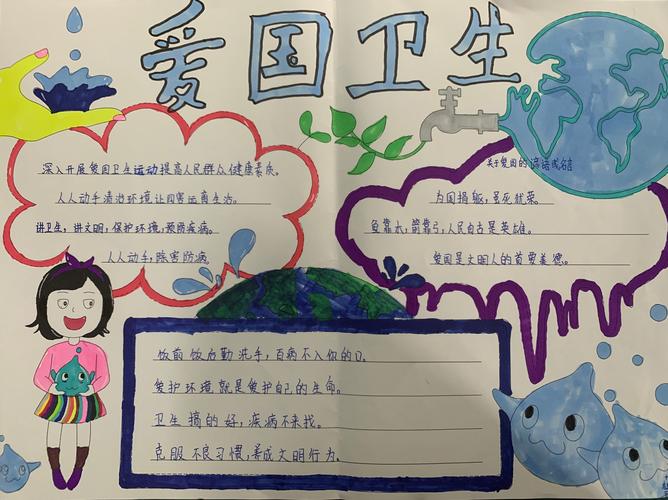 爱国卫生
深入开展爱国卫生运动提高人民群众健康素质。
人人动手清洁环境让四害远离生活。
讲卫生,讲文明,保护环境,预防疾病。
人人动手,除害防病。
关于爱国的谚语或名言
为国捐躯,虽死犹荣。
鱼靠水,箭靠弓,人民自古是英雄。
爱国是文明人的首要美德。
饭前饭后勤洗手,百病不入你的口。
爱护环境就是爱护自己的生命。
卫生搞的好,疾病不来找。
克服不良习惯,养成文明行为。